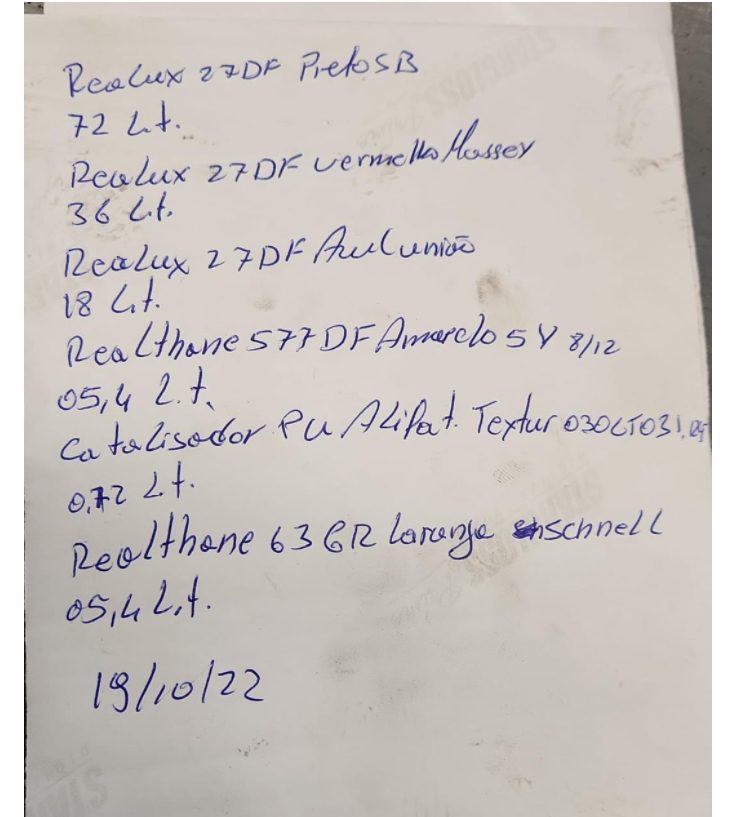 Realux 27DF Preto SB
72 Lt.
Realux 27DF vermelho Massey
36 Lt.
Realux 27DF Azul união
18 Lt.
Realthane 577DF Amarelo 5Y 8/12
05,4 Lt.
Catalisador PU Alifat. Textur 030CT031.
0,72 Lt.
Realthane 63GR laranja schnell
05,4 Lt.
19/10/22
STARGLOSS